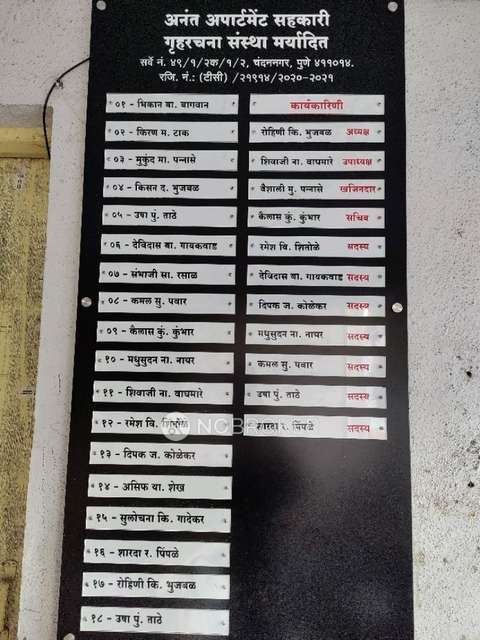 अनंत अपार्टमेंट सहकारी
गृहरचना संस्था मर्यादित
सर्वे नं. ४९/१/२क/१/२, चंदननगर, पुणे ४११०१४.
रजि. नं.: (टीसी) /२१९१४/२०२०-२०२१
०१ - भिकान बा. बागवान
०२ - किरण म. टाक
०३ - मुकुंद मा. पन्नासे
०४ - किसन द. भुजबळ
०५ - उषा पुं. ताठे
०६ - देविदास बा. गायकवाड
०७ - संभाजी सा. रसाळ
०८ - कमल सु. पवार
०९ - कैलास कुं. कुंभार
१० - मधुसुदन ना. नायर
११ - शिवाजी ना. वाघमारे
१२ - रमेश वि. शितोळे
१३ - दिपक ज. कोळेकर
१४ - असिफ या. शेख
१५ - सुलोचना कि. गादेकर
१६ - शारदा र. पिंपळे
१७ - रोहिणी कि. भुजबळ
१८ - उषा पुं. ताठे
कार्यकारिणी
रोहिणी कि. भुजबळ अध्यक्ष
शिवाजी ना. वाघमारे उपाध्यक्ष
वैशाली मु. पन्नासे खजिनदार
कैलास कुं. कुंभार सचिव
रमेश वि. शितोळे सदस्य
देविदास बा. गायकवाड सदस्य
दिपक ज. कोळेकर सदस्य
मधुसुदन ना. नायर सदस्य
कमल सु. पवार सदस्य
उषा पुं. ताठे सदस्य
शारदा र. पिंपळे सदस्य